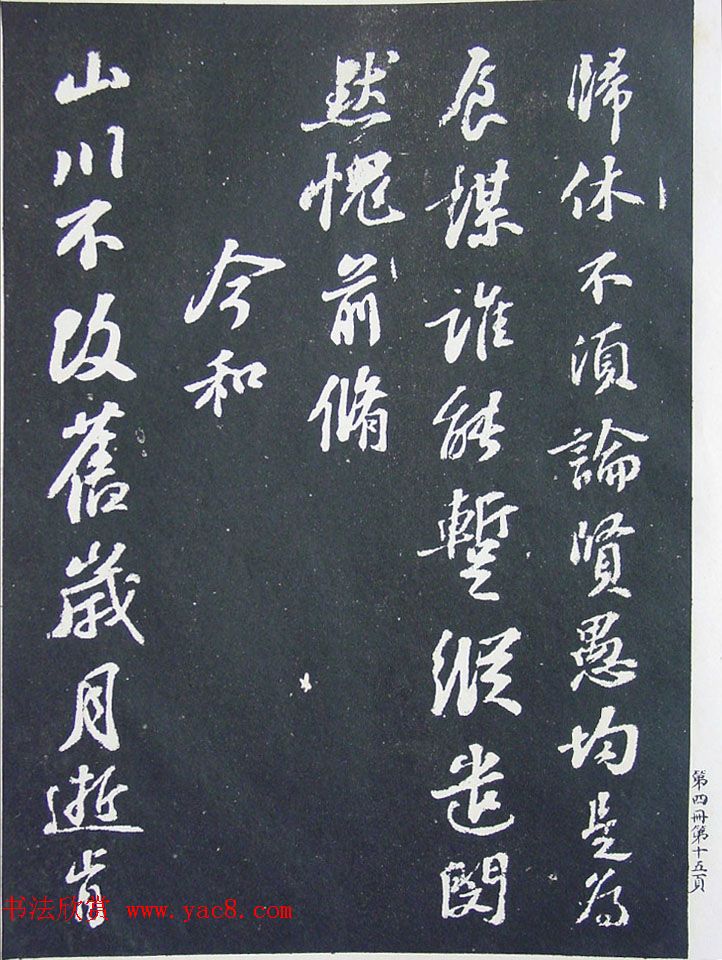 歸休不須論賢愚均是為
食謀誰能暫縱遣閔
默愧前脩
今和
山川不改舊歲月逝肯
第四冊第十五頁
书法欣赏 www.yac8.com